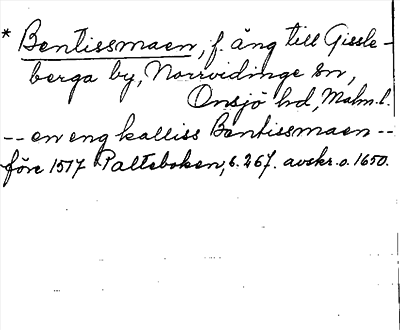 * Bentissmaen, f. äng till Gissle-
berga by, Norrvidinge sn,
Onsjö hd, Malm. l.
-- en eng kalliss Bentissmaen --
före 1517 Palteboken, s. 267. avskr. o. 1650.